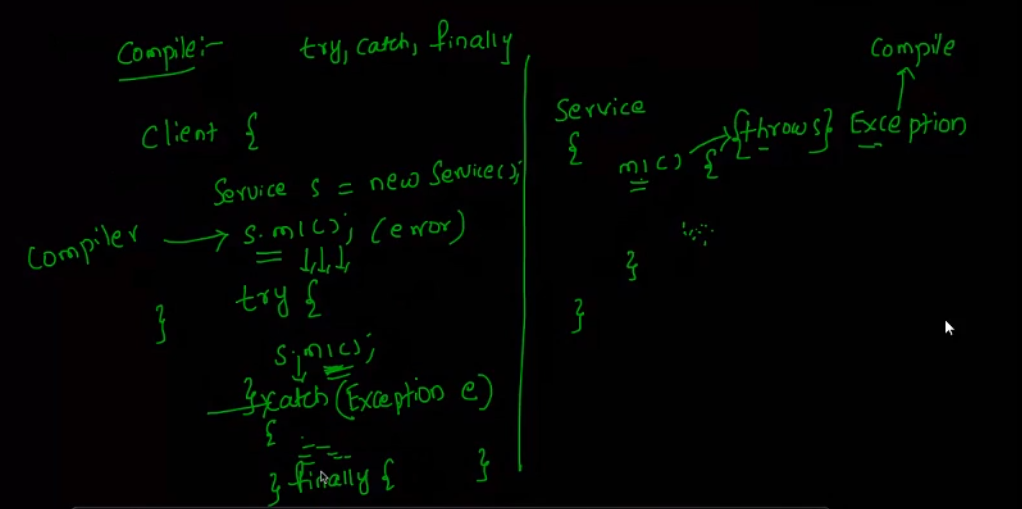 Compile:- try, catch, finally
Client {
Service s = new Service();
Compiler → s.m1(); (error)
try {
}
s.m1();
} catch (Exception e)
{
} finally { }
Compile
Service
{
m1() { {throws} Exception
}
}